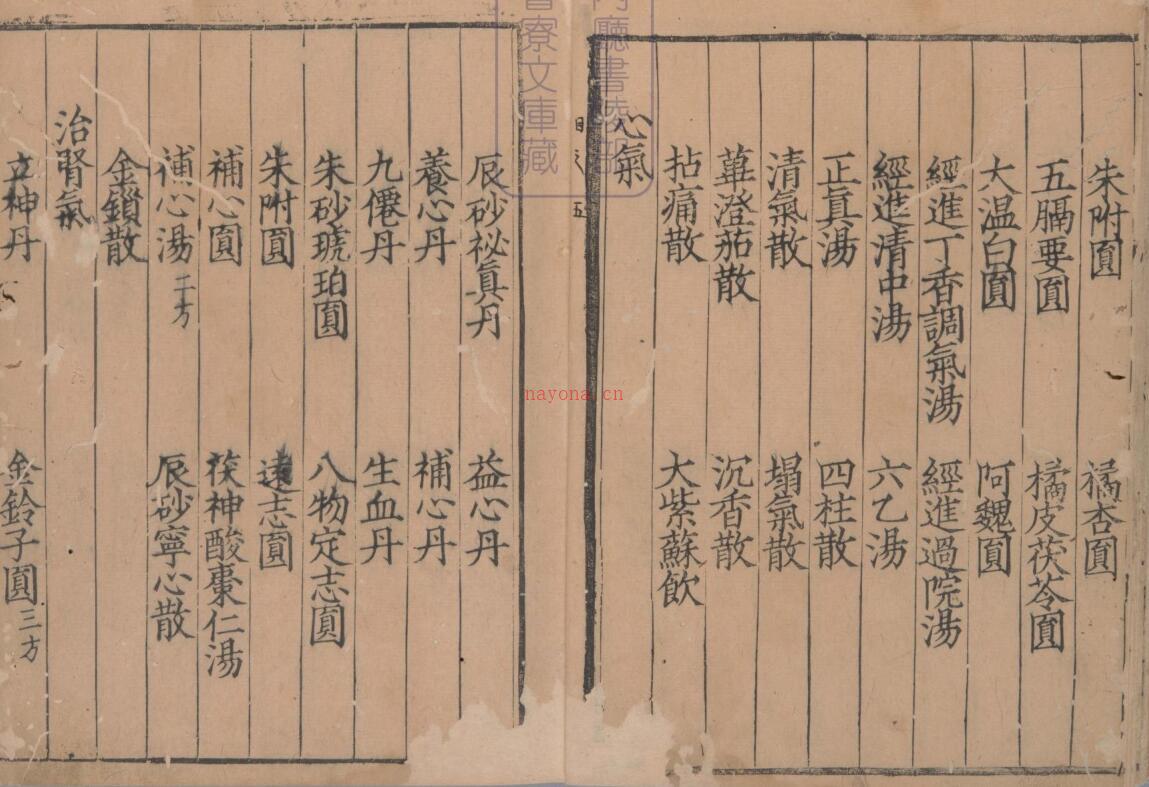 朱附圓 橘杏圓
五膈要圓 橘皮茯苓圓
大温白圓 阿魏圓
經進丁香調氣湯 經進過院湯
經進清中湯 六乙湯
正眞湯 四柱散
清氣散 塌氣散
蓽澄茄散 沉香散
拈痛散 大紫蘇飲
心氣
目 五
辰砂祕眞丹 益心丹
養心丹 補心丹
九僊丹 生血丹
朱砂琥珀圓 八物定志圓
朱附圓 遠志圓
補心圓 茯神酸棗仁湯
補心湯二方 辰砂寧心散
金鎖散
治腎氣
立神丹 金鈴子圓三方
廳書陵部
寮文庫藏
nayona.cn